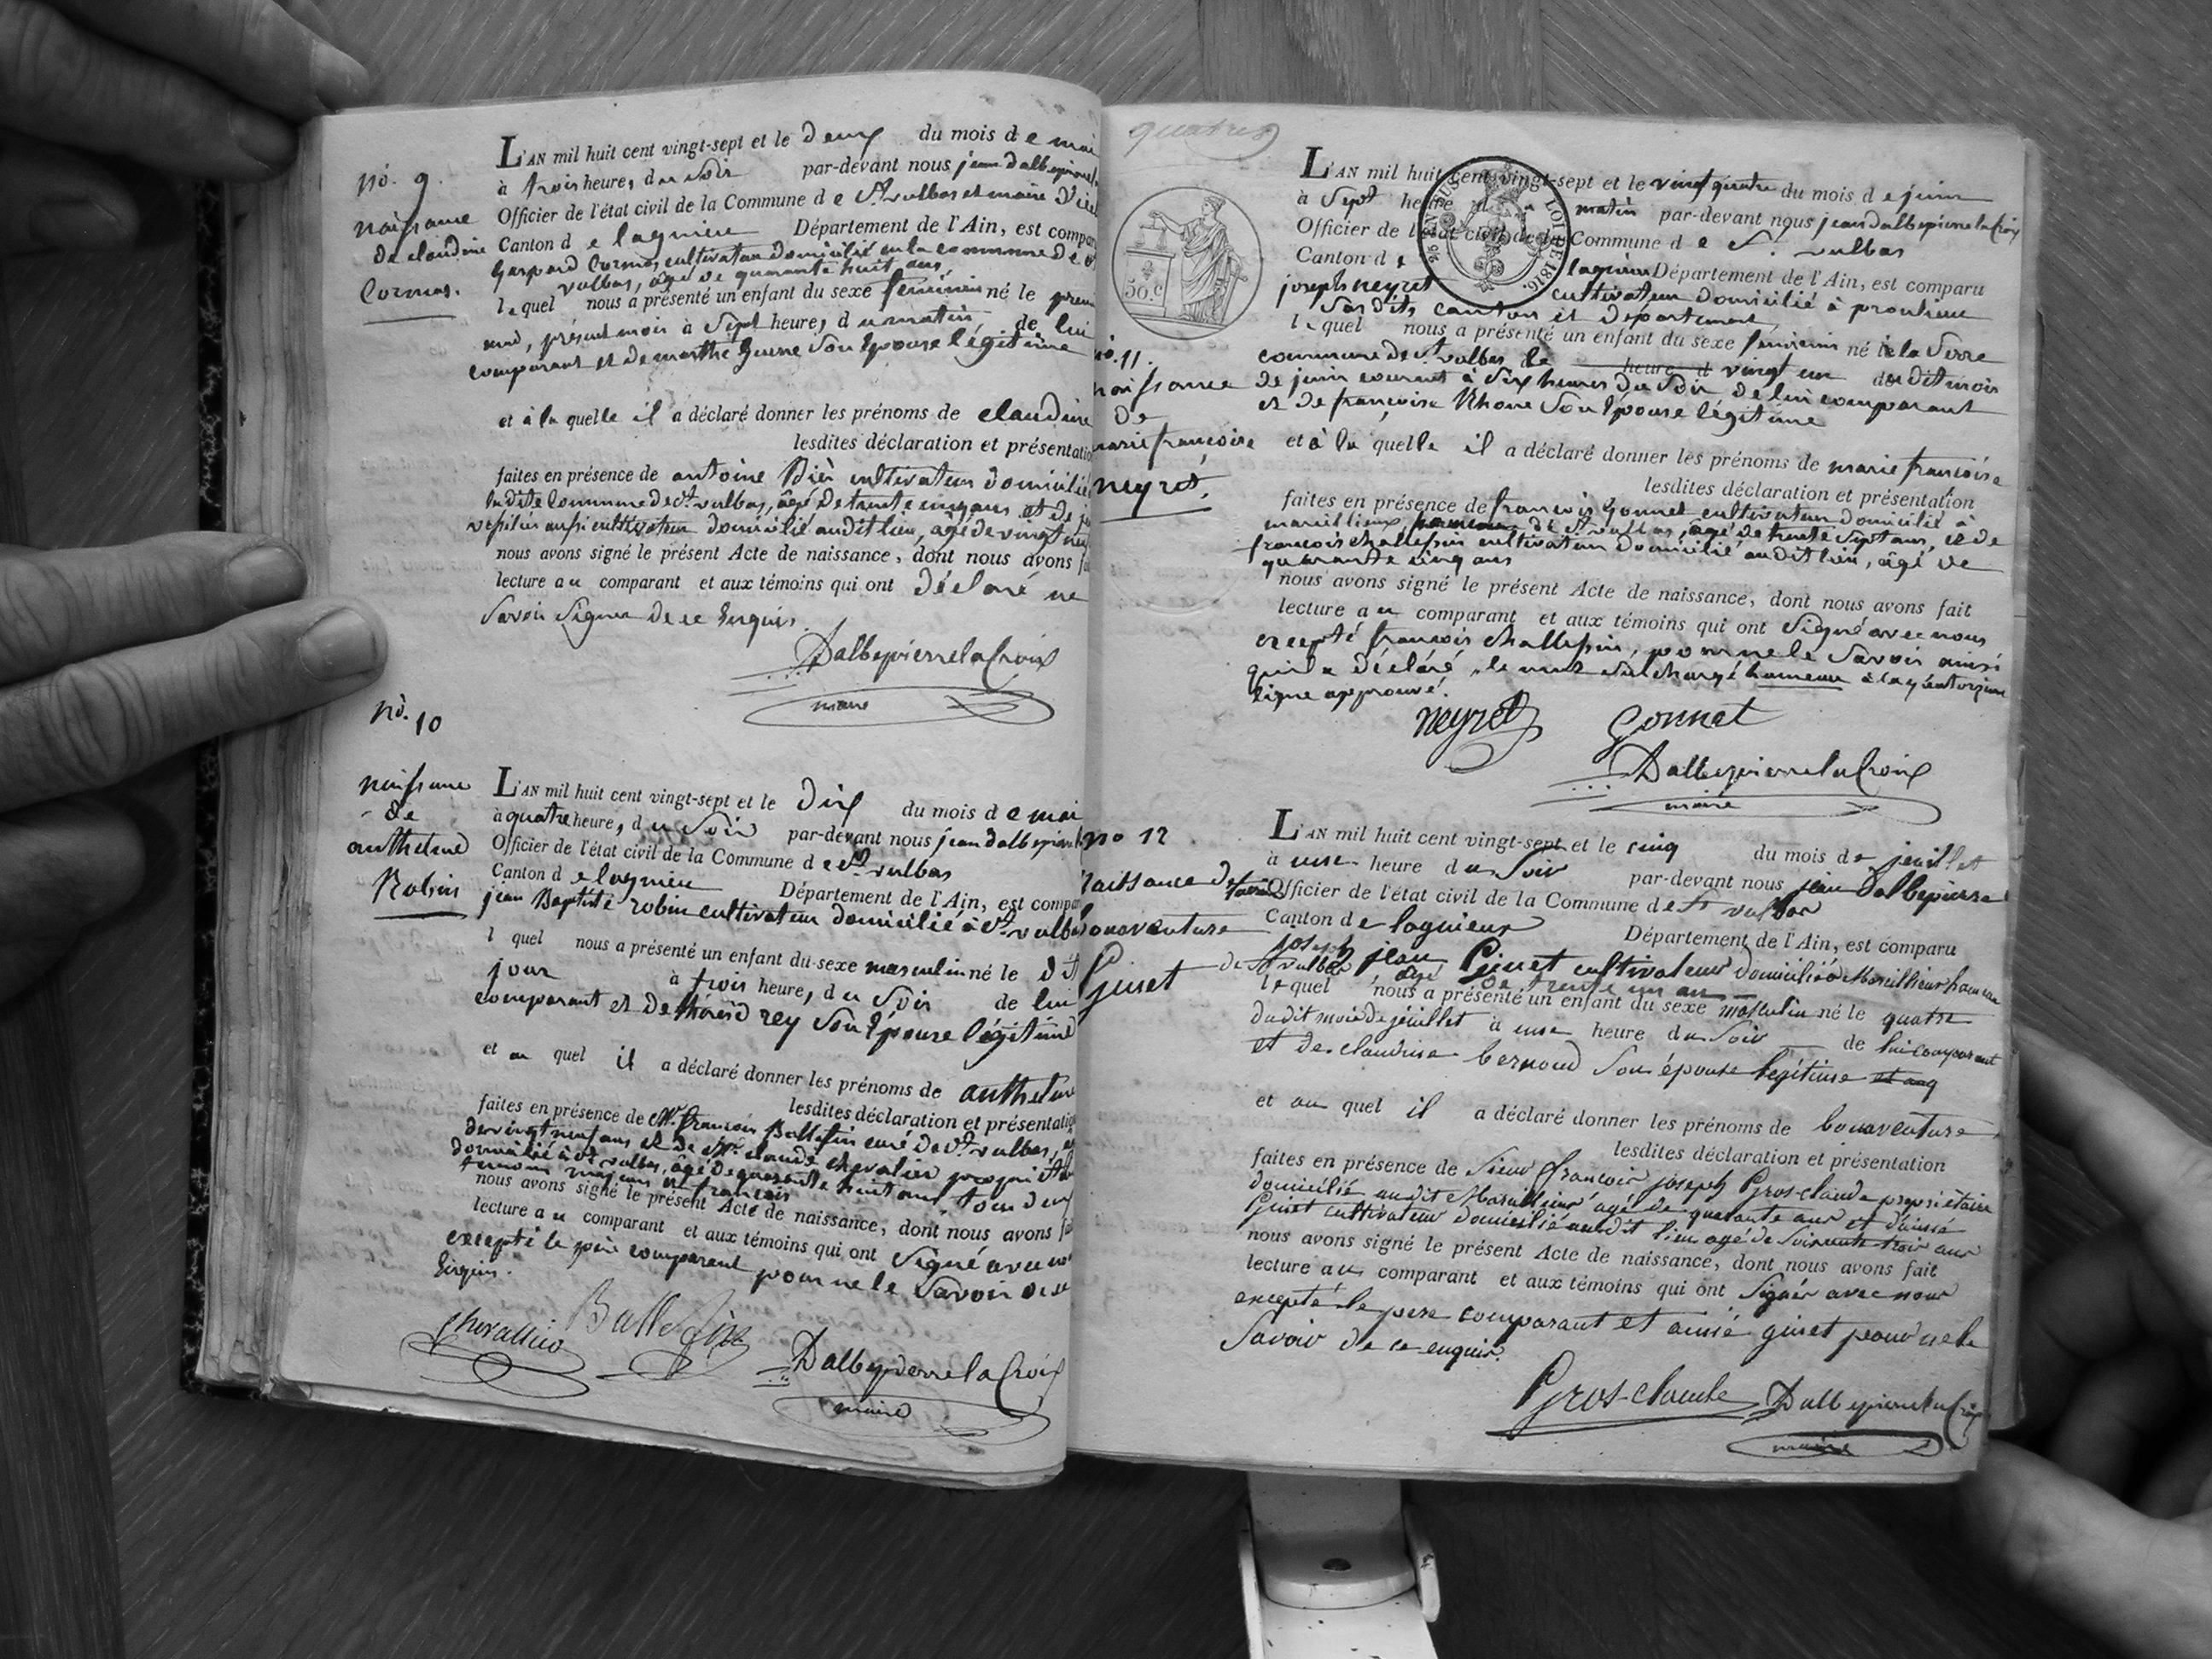 no. 9.
naissance
de claudine
Cormos.
L'AN mil huit cent vingt-sept et le deux du mois de mai
à trois heures du soir par-devant nous jean dalbepierre
Officier de l'état civil de la Commune de St. vulbas et maire d'icel
Canton de lagnieu Département de l'Ain, est compar
gaspard Cormos, cultivateur domicilié en la commune de St
vulbas, âgé de quarante huit ans,
lequel nous a présenté un enfant du sexe feminin né le premi
mai, présent mois à sept heures du matin, de lui
comparant et de marthe guerre son épouse légitime
et à la quelle il a déclaré donner les prénoms de claudine
lesdites déclaration et présentation
faites en présence de antoine cultivateur domicilié
ladite Commune de St. vulbas, âgé de trente cinq ans et de
aussi cultivateur domicilié audit lieu, âgé de vingt neuf
nous avons signé le présent Acte de naissance, dont nous avons fai
lecture au comparant et aux témoins qui ont déclaré ne
savoir signer de ce enquis.
Dalbepierrelacroix
maire
no. 10
naissance
de
anthelme
Robin
L'AN mil huit cent vingt-sept et le dix du mois de mai
à quatre heures du soir par-devant nous jean dalbepierre
Officier de l'état civil de la Commune de St. vulbas
Canton de lagnieu Département de l'Ain, est compar
jean Baptiste robin cultivateur domicilié à St. vulbas
l quel nous a présenté un enfant du sexe masculin né le dit
jour à trois heures du soir de lui
comparant et de rey son épouse légitime
et au quel il a déclaré donner les prénoms de anthelme
lesdites déclaration et présentation
faites en présence de Mr. françois Ballefin curé de St. vulbas,
de vingt neuf ans et de Mr. claude chevalier propriétaire
domicilié à St. vulbas, âgé de quarante huit ans, tous deux
témoins majeurs et françois
nous avons signé le présent Acte de naissance, dont nous avons fai
lecture au comparant et aux témoins qui ont signé avec nous
excepté le père comparant pour ne le savoir de ce
enquis.
chevallier Ballefin
Dalbepierrelacroix
maire
quatre
50.c
LOI DE 1816.
no. 11.
naissance
de
marie françoise
neyret.
L'AN mil huit cent vingt-sept et le vingt quatre du mois de juin
à sept heures du matin par-devant nous jean dalbepierrelacroix
Officier de l'état civil de la Commune de St. vulbas
Canton de lagnieu Département de l'Ain, est comparu
joseph neyret cultivateur domicilié à proulieu
susdits canton et département
lequel nous a présenté un enfant du sexe feminin né à la Serre
commune de St. vulbas le heure d vingt un du dit mois
de juin courant à six heures du soir de lui comparant
et de françoise Rhone son épouse légitime
et à la quelle il a déclaré donner les prénoms de marie françoise
lesdites déclaration et présentation
faites en présence de françois gonnet cultivateur domicilié à
marcillieux, hameau de St. vulbas, âgé de trente sept ans, et de
françois challefin cultivateur domicilié audit lieu, âgé de
quarante cinq ans
nous avons signé le présent Acte de naissance, dont nous avons fait
lecture au comparant et aux témoins qui ont signé avec nous
excepté françois challefin, pour ne le savoir ainsi
qu'il a déclaré, le mot surchargé hameau à la quatorzieme
ligne approuvé.
neyret Gonnet
Dalbepierrelacroix
maire
no 12
naissance de
bonaventure
Ginet
L'AN mil huit cent vingt-sept et le cinq du mois de jeuillet
à une heure du soir par-devant nous jean dalbepierre
Officier de l'état civil de la Commune de St vulbas
Canton de lagnieux Département de l'Ain, est comparu
joseph jean Ginet cultivateur domicilié à Marsillieux hameau
de St vulbas âgé de trente un an
lequel nous a présenté un enfant du sexe masculin né le quatre
dudit mois de jeuillet à une heure du soir de lui comparant
et de claudine bernoud son épouse legitime et ang
et au quel il a déclaré donner les prénoms de bonaventure
lesdites déclaration et présentation
faites en présence de sieur françois joseph Gros-claude propriétaire
domicilié audit Marsillieux agé de quarante ans et d'aimé
Ginet cultivateur domicilié audit lieu agé de soixante trois ans
nous avons signé le présent Acte de naissance, dont nous avons fait
lecture au comparant et aux témoins qui ont signés avec nous
excepté le pere comparant et aimé ginet pour ne le
savoir de ce enquis.
Gros-claude Dalbepierrelacroix
maire